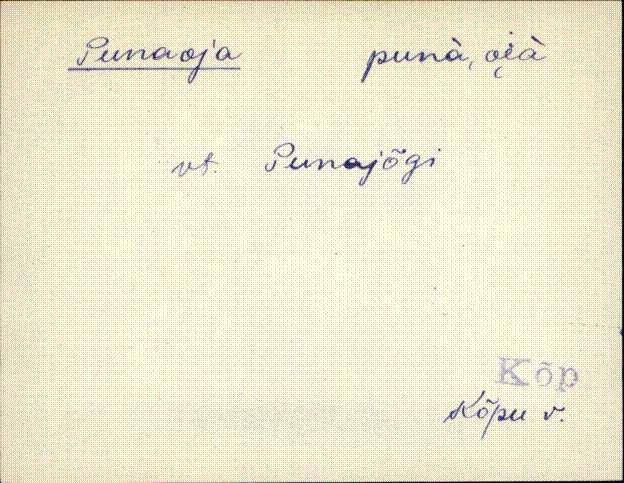 Punaoja punà, oi̯à
vt. Punajõgi
Kõp
Kõpu v.